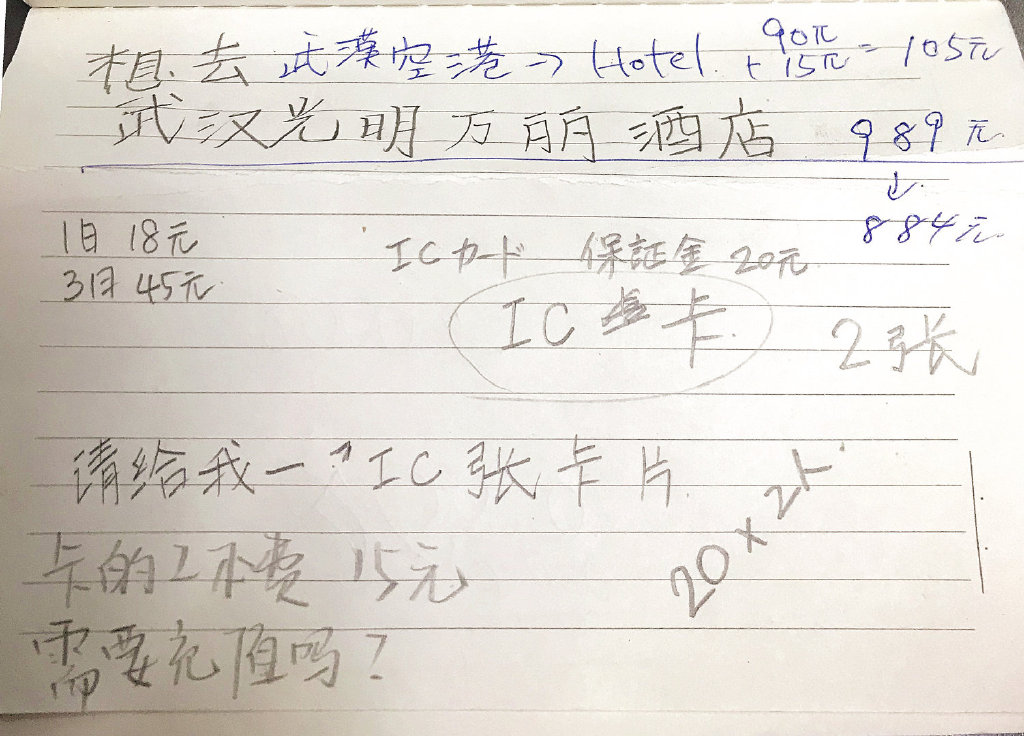 想去 武漢空港→Hotel. 90元+15元=105元
武汉光明万丽酒店 989元
↓
884元
1日 18元
3日 45元
ICカード 保証金 20元
IC 卡 2张
请给我一 IC 张卡片
20×2人
卡的工本费 15元
需要充值吗?